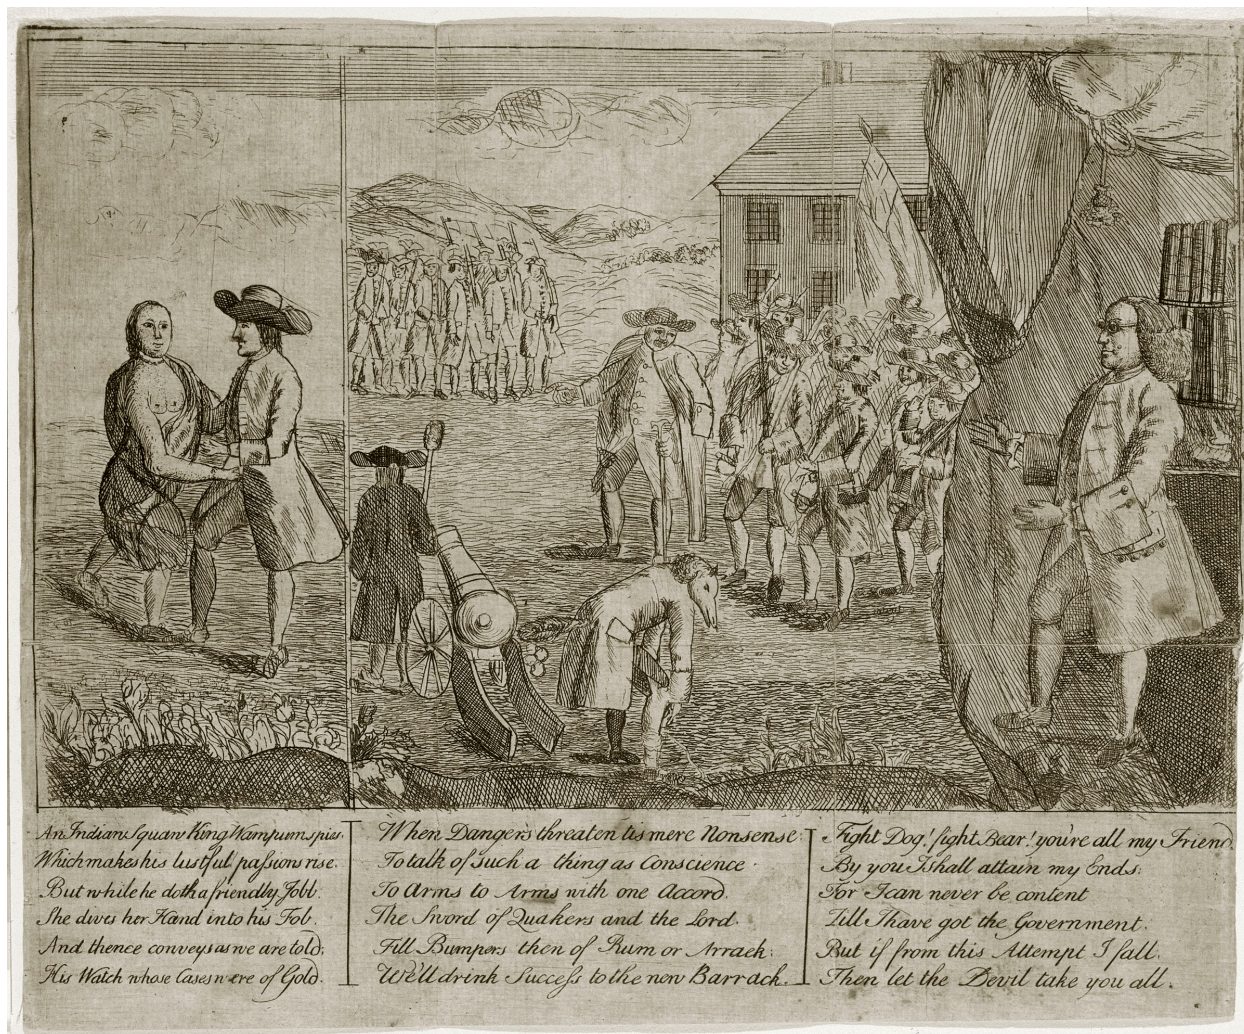 An Indian Squaw King Wampum spies
Which makes his lustful passions rise.
But while he doth a friendly Jobb
She dives her Hand into his Fob
And thence conveys as we are told,
His Watch whose Cases were of Gold.
When Dangers threaten tis mere Nonsense
To talk of such a thing as Conscience
To Arms to Arms with one Accord
The Sword of Quakers and the Lord.
Fill Bumpers then of Rum or Arrack
We'll drink Success to the new Barrack.
Fight Dog! fight Bear! you're all my Friend
By you I shall attain my Ends.
For I can never be content
Till I have got the Government.
But if from this Attempt I fall
Then let the Devil take you all.